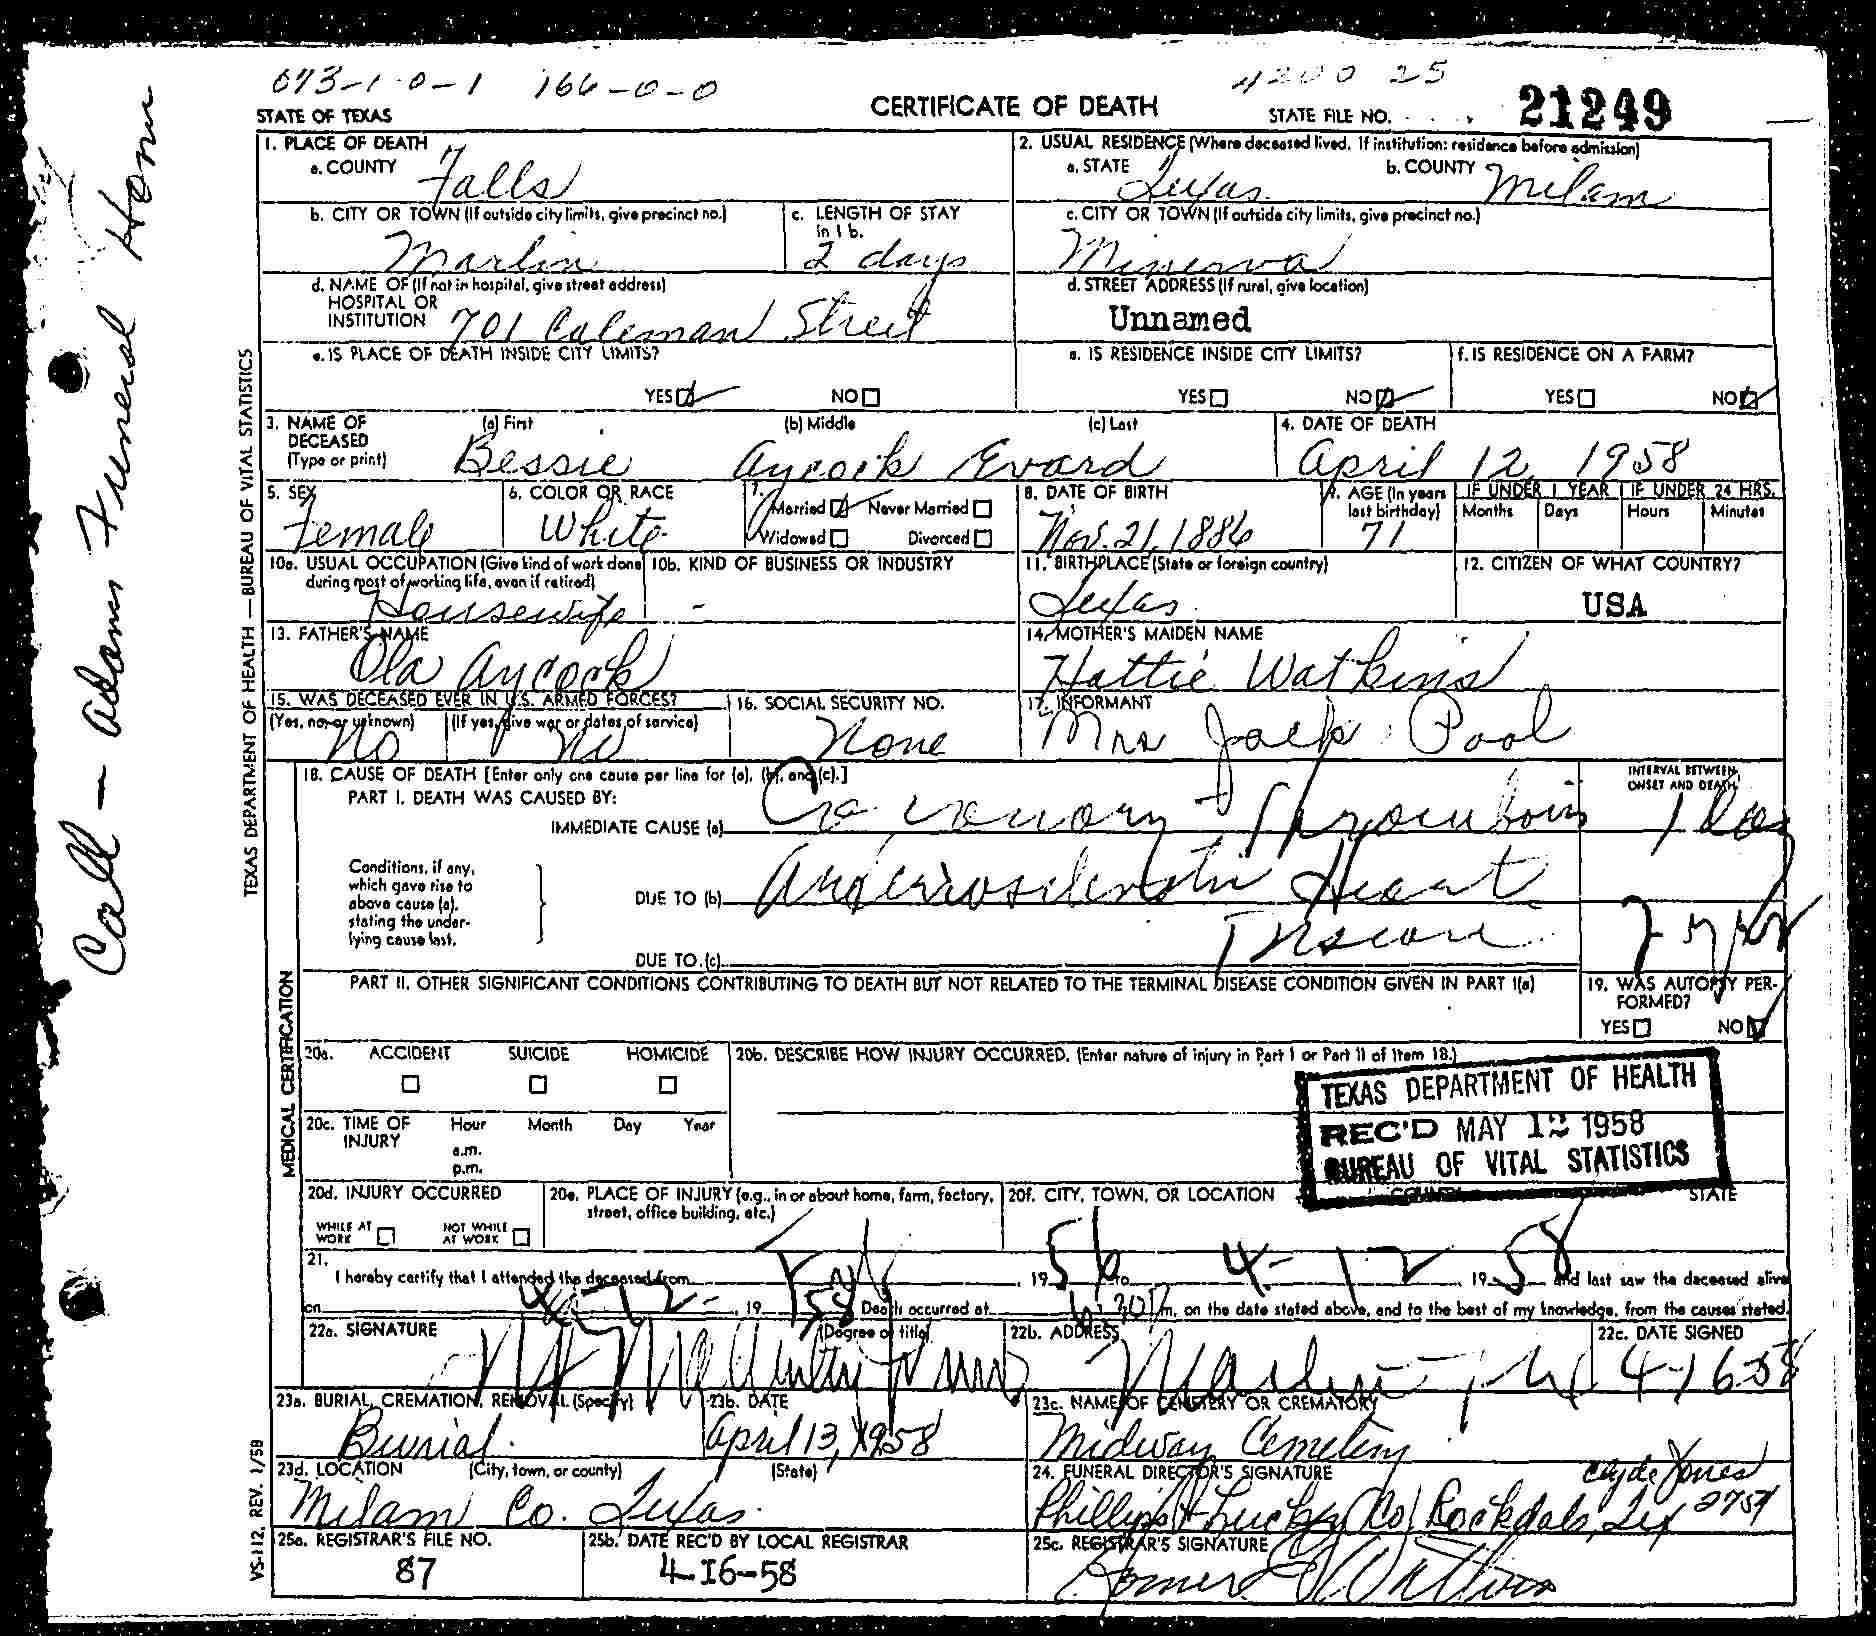 673-1-0-1 166-0-0 4200 25
STATE OF TEXAS CERTIFICATE OF DEATH STATE FILE NO. 21249
Call - Adams Funeral Hom
TEXAS DEPARTMENT OF HEALTH — BUREAU OF VITAL STATISTICS
VS-112, REV. 1/58
1. PLACE OF DEATH
a. COUNTY Falls
2. USUAL RESIDENCE (Where deceased lived. If institution: residence before admission)
a. STATE Texas b. COUNTY Milam
b. CITY OR TOWN (If outside city limits, give precinct no.) Marlin
c. LENGTH OF STAY in 1 b. 2 days
c. CITY OR TOWN (If outside city limits, give precinct no.) Minerva
d. NAME OF (If not in hospital, give street address)
HOSPITAL OR
INSTITUTION 701 Coleman Street
d. STREET ADDRESS (If rural, give location)
Unnamed
e. IS PLACE OF DEATH INSIDE CITY LIMITS?
YES NO
e. IS RESIDENCE INSIDE CITY LIMITS?
YES NO
f. IS RESIDENCE ON A FARM?
YES NO
3. NAME OF DECEASED (Type or print) (a) First (b) Middle (c) Last
Bessie Aycock Evard
4. DATE OF DEATH
April 12, 1958
5. SEX
Female
6. COLOR OR RACE
White
7. Married Never Married
Widowed Divorced
8. DATE OF BIRTH
Nov. 21, 1886
9. AGE (In years last birthday)
71
IF UNDER 1 YEAR IF UNDER 24 HRS.
Months Days Hours Minutes
10a. USUAL OCCUPATION (Give kind of work done during most of working life, even if retired)
Housewife
10b. KIND OF BUSINESS OR INDUSTRY
-
11. BIRTHPLACE (State or foreign country)
Texas
12. CITIZEN OF WHAT COUNTRY?
USA
13. FATHER'S NAME
Ola Aycock
14. MOTHER'S MAIDEN NAME
Hattie Watkins
15. WAS DECEASED EVER IN U.S. ARMED FORCES?
(Yes, no, or unknown) (If yes, give war or dates of service)
No No
16. SOCIAL SECURITY NO.
None
17. INFORMANT
Mrs Jack Pool
MEDICAL CERTIFICATION
18. CAUSE OF DEATH [Enter only one cause per line for (a), (b), and (c).]
INTERVAL BETWEEN ONSET AND DEATH
PART I. DEATH WAS CAUSED BY:
IMMEDIATE CAUSE (a) Coronary Thrombosis 1 day
Conditions, if any, which gave rise to above cause (a), stating the underlying cause last.
DUE TO (b) Arteriosclerotic Heart
Disease
DUE TO (c)
PART II. OTHER SIGNIFICANT CONDITIONS CONTRIBUTING TO DEATH BUT NOT RELATED TO THE TERMINAL DISEASE CONDITION GIVEN IN PART I(a)
19. WAS AUTOPSY PERFORMED?
YES NO
20a. ACCIDENT SUICIDE HOMICIDE
20b. DESCRIBE HOW INJURY OCCURRED. (Enter nature of injury in Part I or Part II of Item 18.)
TEXAS DEPARTMENT OF HEALTH
REC'D MAY 12 1958
BUREAU OF VITAL STATISTICS
20c. TIME OF INJURY Hour Month Day Year
a.m.
p.m.
20d. INJURY OCCURRED
WHILE AT WORK NOT WHILE AT WORK
20e. PLACE OF INJURY (e.g., in or about home, farm, factory, street, office building, etc.)
20f. CITY, TOWN, OR LOCATION COUNTY STATE
21. I hereby certify that I attended the deceased from Feb, 1956 to 4-12, 1958 and last saw the deceased alive
on 4-12-, 1958 Death occurred at m, on the date stated above, and to the best of my knowledge, from the causes stated.
22a. SIGNATURE (Degree or title)
22b. ADDRESS
Marlin, Tex
22c. DATE SIGNED
4-16-58
23a. BURIAL, CREMATION, REMOVAL (Specify)
Burial
23b. DATE
April 13, 1958
23c. NAME OF CEMETERY OR CREMATORY
Midway Cemetery
23d. LOCATION (City, town, or county) (State)
Milam Co. Texas
24. FUNERAL DIRECTOR'S SIGNATURE Clyde Jones
Phillips & Luckey Co, Rockdale, Tex 2754
25a. REGISTRAR'S FILE NO.
87
25b. DATE REC'D BY LOCAL REGISTRAR
4-I6-58
25c. REGISTRAR'S SIGNATURE
Homer